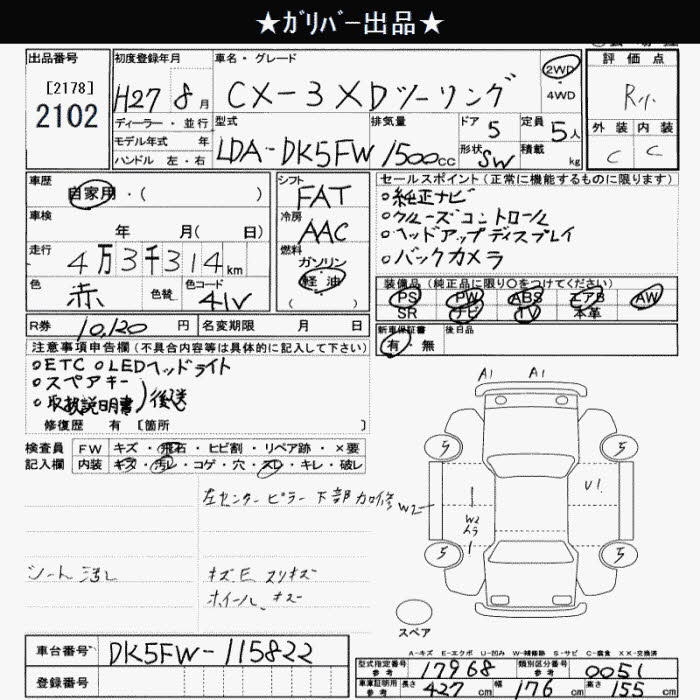 ★ｶﾞﾘﾊﾞｰ出品★
出品番号
[2178]
2102
初度登録年月
H27 8月
ディーラー・並行
モデル年式 年
ハンドル 左・右
車名・グレード
CX-3 XDツーリング
2WD
4WD
型式
LDA-DK5FW
排気量
1500cc
ドア
5
形状
SW
定員
5人
積載
kg
評価点
R小
外装 内装
C C
車歴
自家用・( )
車検
年 月( 日)
走行
4万3千314km
色
赤
色替
色コード
41V
シフト
FAT
冷房
AAC
燃料
ガソリン
軽油
( )
セールスポイント(正常に機能するものに限ります)
○純正ナビ
○クルーズコントロール
○ヘッドアップディスプレイ
○バックカメラ
装備品(純正品に限り○をつけてください)
PS PW ABS エアB AW
SR ナビ TV 本革
R券
10,120円
名変期限 月 日
新車保証書
有・無
後日品
注意事項申告欄(不具合内容等は具体的に記入して下さい)
○ETC ○LEDヘッドライト
○スペアキー
○取扱説明書)後送
修復歴 有 [箇所 ]
検査員
記入欄
FW キズ・飛石・ヒビ割・リペア跡・×要
内装 キズ・汚レ・コゲ・穴・スレ・キレ・破レ
左センターピラー下部加修
シート汚レ
キズE スリキズ
ホイールキズ
A1 A1
5 5
W2
W2
ムラ
U1
5 5
スペア
車台番号
DK5FW-115822
登録番号
A-キズ E-エクボ U-凹み W-補修跡 S-サビ C-腐食 XX-交換済
型式指定番号
参考
17968
類別区分番号
参考
0051
車庫証明用
参考
長さ 427cm 幅 176cm 高さ 155cm